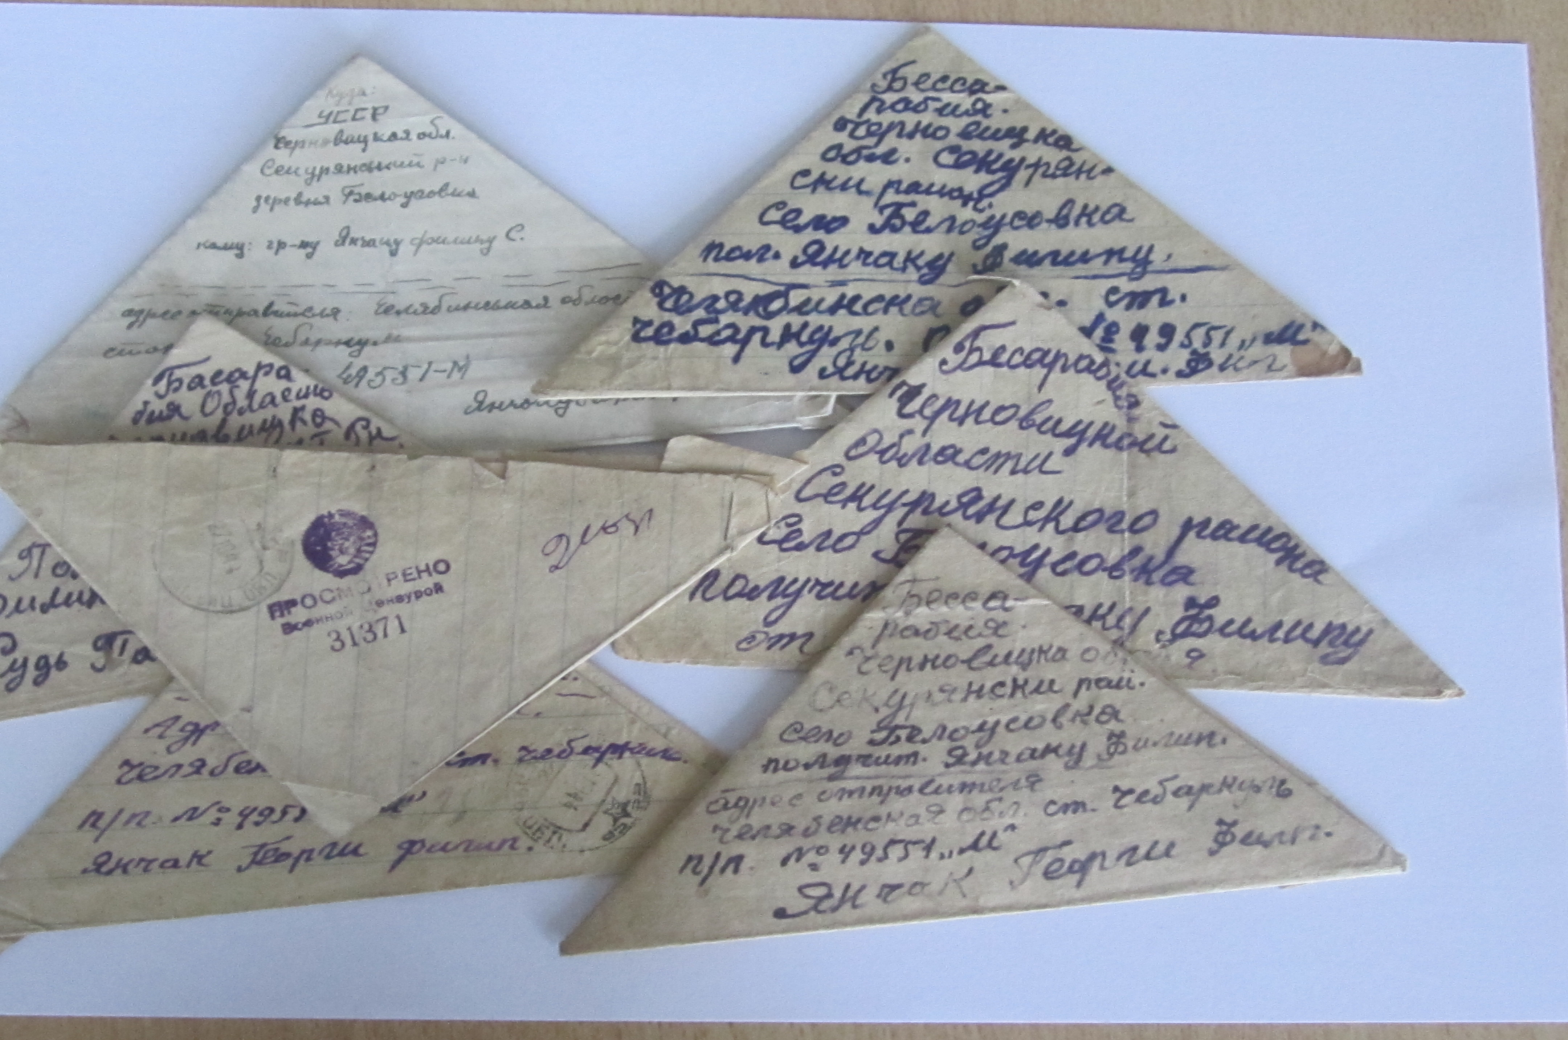 Куда:
УССР
Черновицкая обл.
Секурянский р-н
деревня Белоусовка
кому: гр-ну Янчаку Филипу С.
адрес отправителя Челябинская
Чебаркуль
49551-М
Бесса-
рабия.
Черновицка
обл. Секурян-
ски район.
село Белоусовка
пол. Янчаку Филипу.
Челябинска ст.
Чебаркуль. № 49551 „М"
Басара
бия Област
Бесарабия
Черновицкой
Области
Секурянского района
Село
получит Филипу
от
ПРОСМ РЕНО
Военной Цензурой
31371
Челябен ст. чебаркул.
п/п. № 4955
Янчак Георги филип.
Бесса-
рабия.
Черновицка
Секурянски рай.
село Белоусовка
получит. Янчаку Филип.
адрес отправителя
Челябенская обл. ст. Чебаркуль
п/п. № 49551 „М"
Янчак Георги Филп.